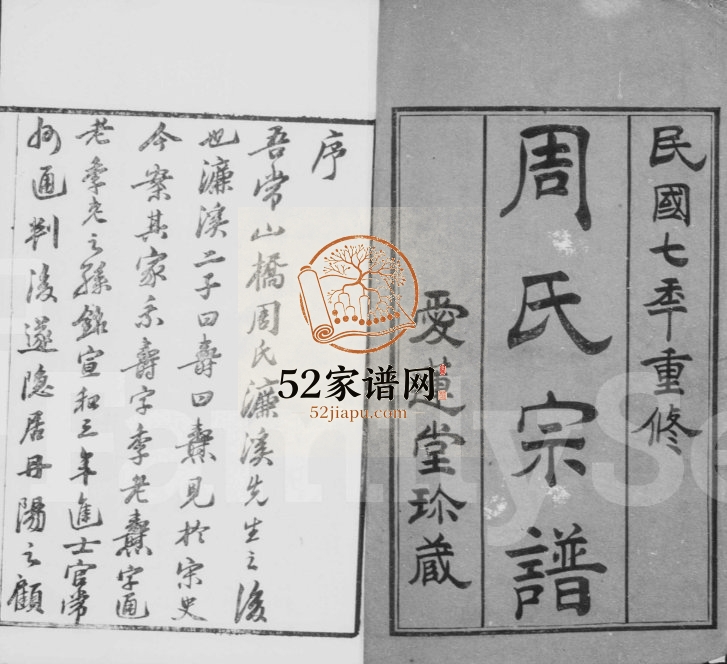 民國七年重修
周氏宗譜
愛蓮堂珍藏
序
吾常山橋周氏濂溪先生之後
也濂溪二子曰壽曰燾見於宋史
今案其家乘壽字季老燾字通
老季老之孫銘宣和三年進士官常
州通判後遂隐居丹陽之顧
52家谱网
52jiapu.com